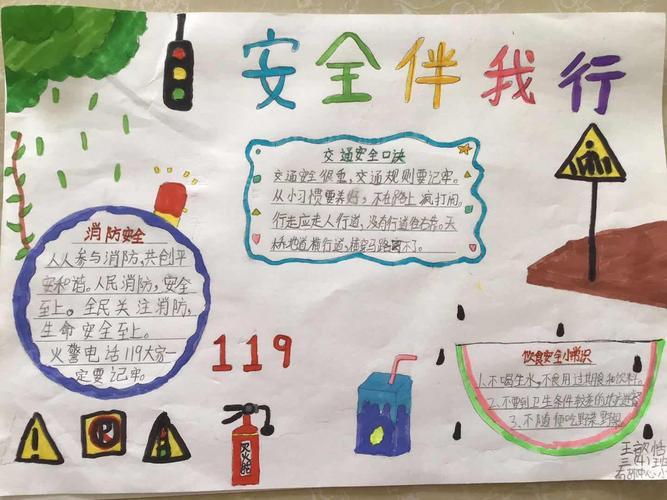 安全伴我行
交通安全口诀
交通安全很重,交通规则要记牢。
从小习惯要养好,不在路上疯打闹。
行走应走人行道,没有行道往右靠。天
桥地道横行道,横穿马路离不了。
消防安全
人人参与消防,共创平
安和谐。人民消防,安全
至上。全民关注消防,
生命安全至上。
火警电话119大家一
定要记牢。
119
灭火器
饮食安全小常识
1.不喝生水,不食用过期食和饮料。
2.不要到卫生条件较差的地方进餐
3.不随便吃野菜野果
三(4)班